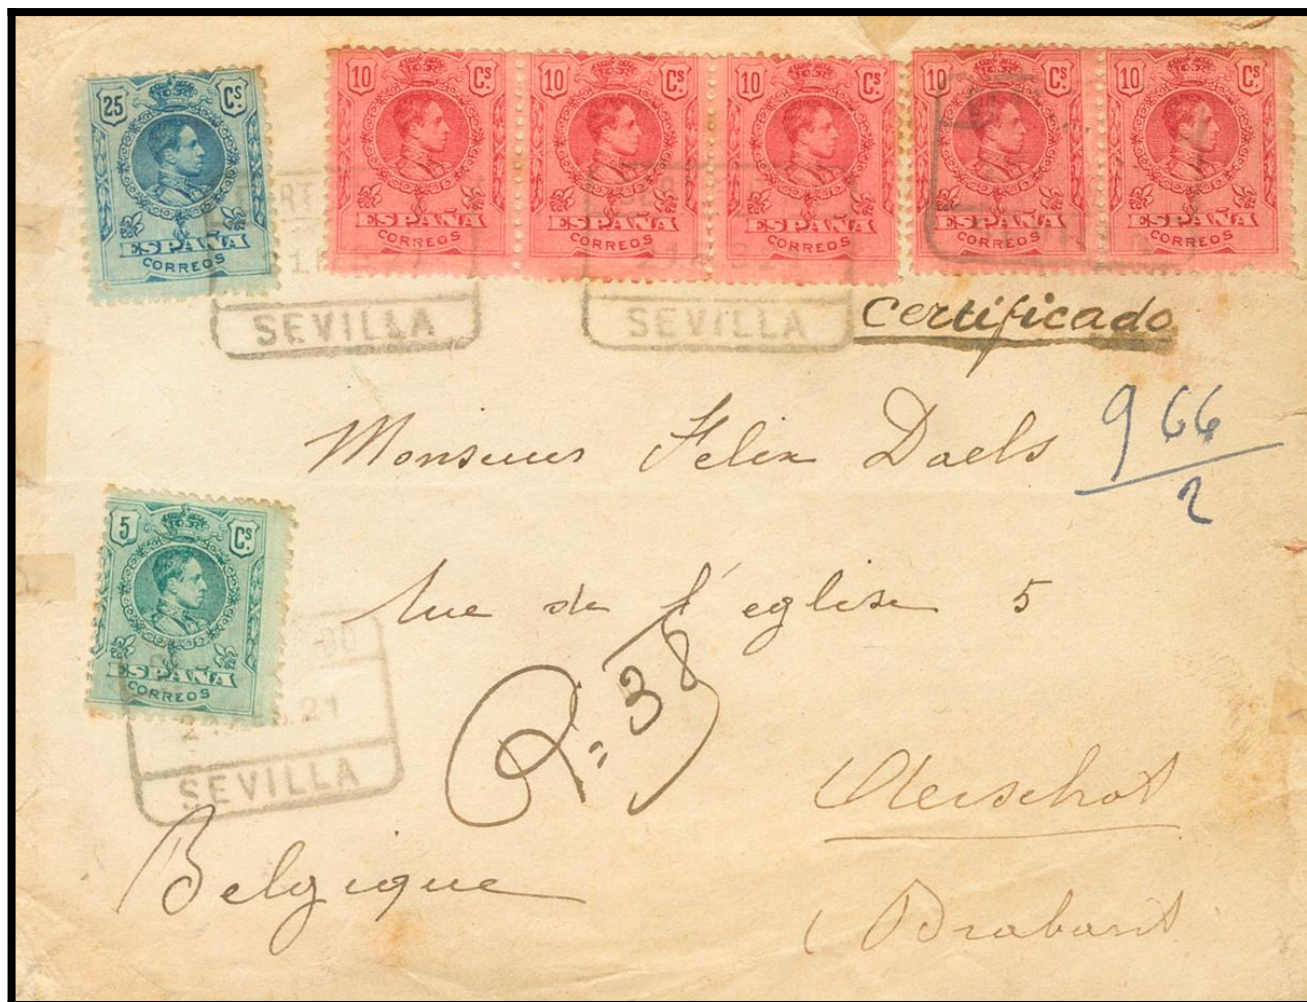 25 Cs.
ESPAÑA
CORREOS
10 Cs.
ESPAÑA
CORREOS
10 Cs.
ESPAÑA
CORREOS
10 Cs.
ESPAÑA
CORREOS
10 Cs.
ESPAÑA
CORREOS
10 Cs.
ESPAÑA
CORREOS
SEVILLA
SEVILLA
Certificado
966
2
Monsieur Felix Daels
5 Cs.
ESPAÑA
CORREOS
Rue de l'eglise 5
R = 38
21
SEVILLA
Aerschot
Belgique
Brabant